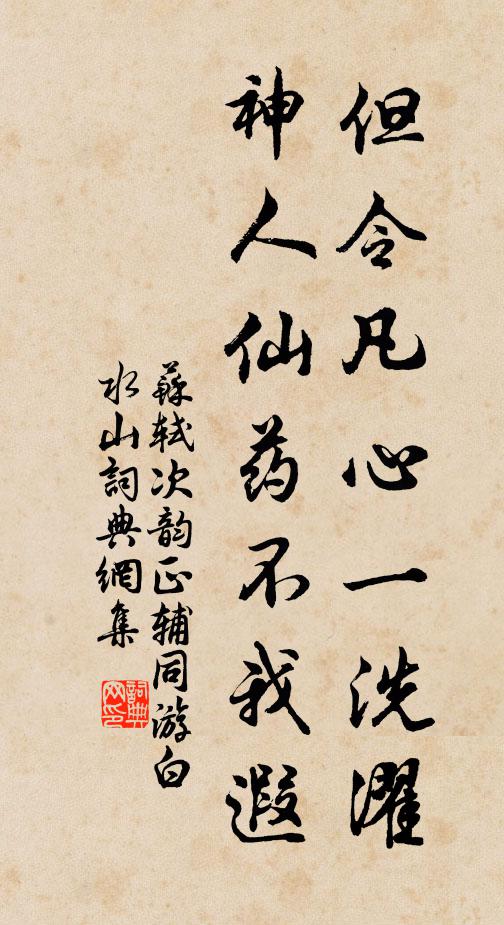 但令凡心一洗濯
神人仙药不我遐
蘇轼次韵正辅同游白
水山詞典網集
詞典
网印